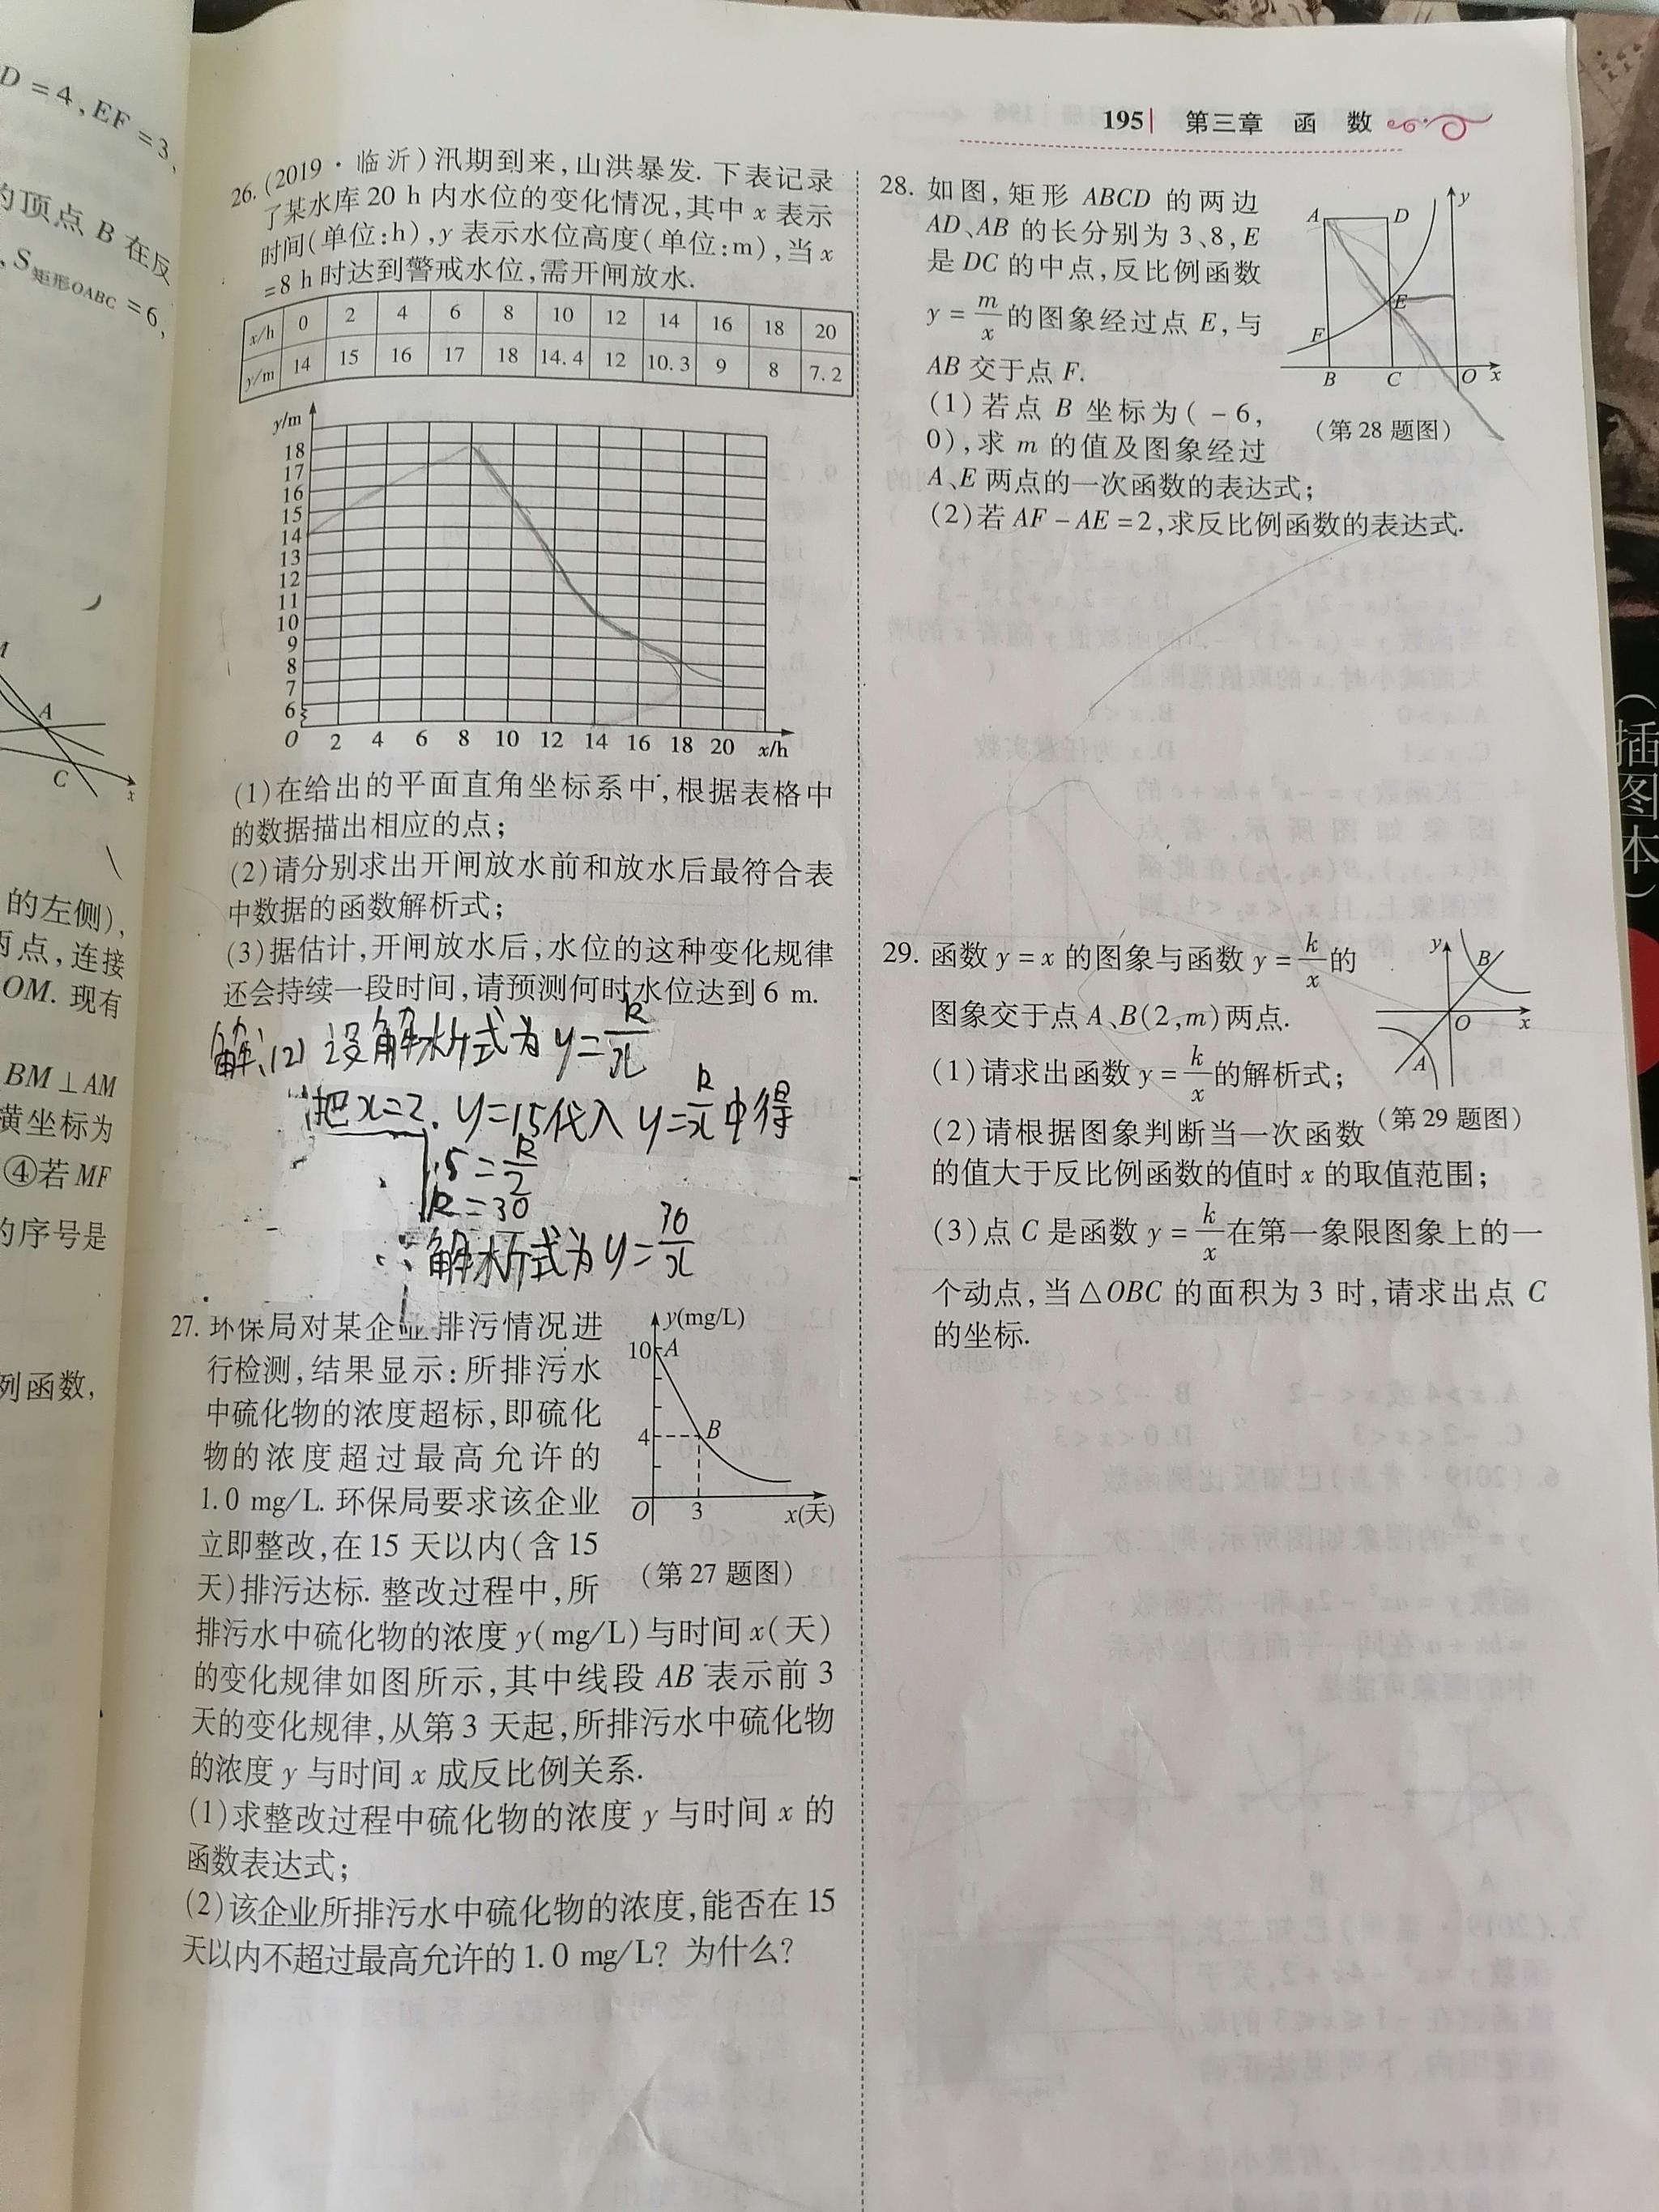 D=4,EF=3,
的顶点 B 在反
,S矩形OABC=6,
A
C
x
的左侧),
两点,连接
OM. 现有
BM⊥AM
横坐标为
④若 MF
的序号是
列函数,
195| 第三章 函 数
26. (2019·临沂)汛期到来,山洪暴发. 下表记录
了某水库 20 h 内水位的变化情况,其中 x 表示
时间(单位:h),y 表示水位高度(单位:m),当 x
=8 h 时达到警戒水位,需开闸放水.
x/h 0 2 4 6 8 10 12 14 16 18 20
y/m 14 15 16 17 18 14.4 12 10.3 9 8 7.2
y/m
18
17
16
15
14
13
12
11
10
9
8
7
6
O 2 4 6 8 10 12 14 16 18 20 x/h
(1)在给出的平面直角坐标系中,根据表格中
的数据描出相应的点;
(2)请分别求出开闸放水前和放水后最符合表
中数据的函数解析式;
(3)据估计,开闸放水后,水位的这种变化规律
还会持续一段时间,请预测何时水位达到 6 m.
解:(2) 设解析式为 y=k/x
把x=2, y=15代入 y=k/x中得
15=k/2
k=30
∴解析式为y=30/x
27. 环保局对某企业排污情况进
行检测,结果显示:所排污水
中硫化物的浓度超标,即硫化
物的浓度超过最高允许的
1.0 mg/L. 环保局要求该企业
立即整改,在 15 天以内(含 15
天)排污达标. 整改过程中,所
排污水中硫化物的浓度 y(mg/L)与时间 x(天)
的变化规律如图所示,其中线段 AB 表示前 3
天的变化规律,从第 3 天起,所排污水中硫化物
的浓度 y 与时间 x 成反比例关系.
(1)求整改过程中硫化物的浓度 y 与时间 x 的
函数表达式;
(2)该企业所排污水中硫化物的浓度,能否在 15
天以内不超过最高允许的 1.0 mg/L? 为什么?
y(mg/L)
10 A
4 B
O 3 x(天)
(第 27 题图)
28. 如图,矩形 ABCD 的两边
AD、AB 的长分别为 3、8,E
是 DC 的中点,反比例函数
y=m/x的图象经过点 E,与
AB 交于点 F.
(1)若点 B 坐标为(-6,
0),求 m 的值及图象经过
A、E 两点的一次函数的表达式;
(2)若 AF-AE=2,求反比例函数的表达式.
y
A D
E
F
B C O x
(第 28 题图)
29. 函数 y=x 的图象与函数 y=k/x的
图象交于点 A、B(2,m)两点.
(1)请求出函数 y=k/x的解析式;
(2)请根据图象判断当一次函数
的值大于反比例函数的值时 x 的取值范围;
(3)点 C 是函数 y=k/x在第一象限图象上的一
个动点,当△OBC 的面积为 3 时,请求出点 C
的坐标.
y
B
O x
A
(第 29 题图)
(插图本)